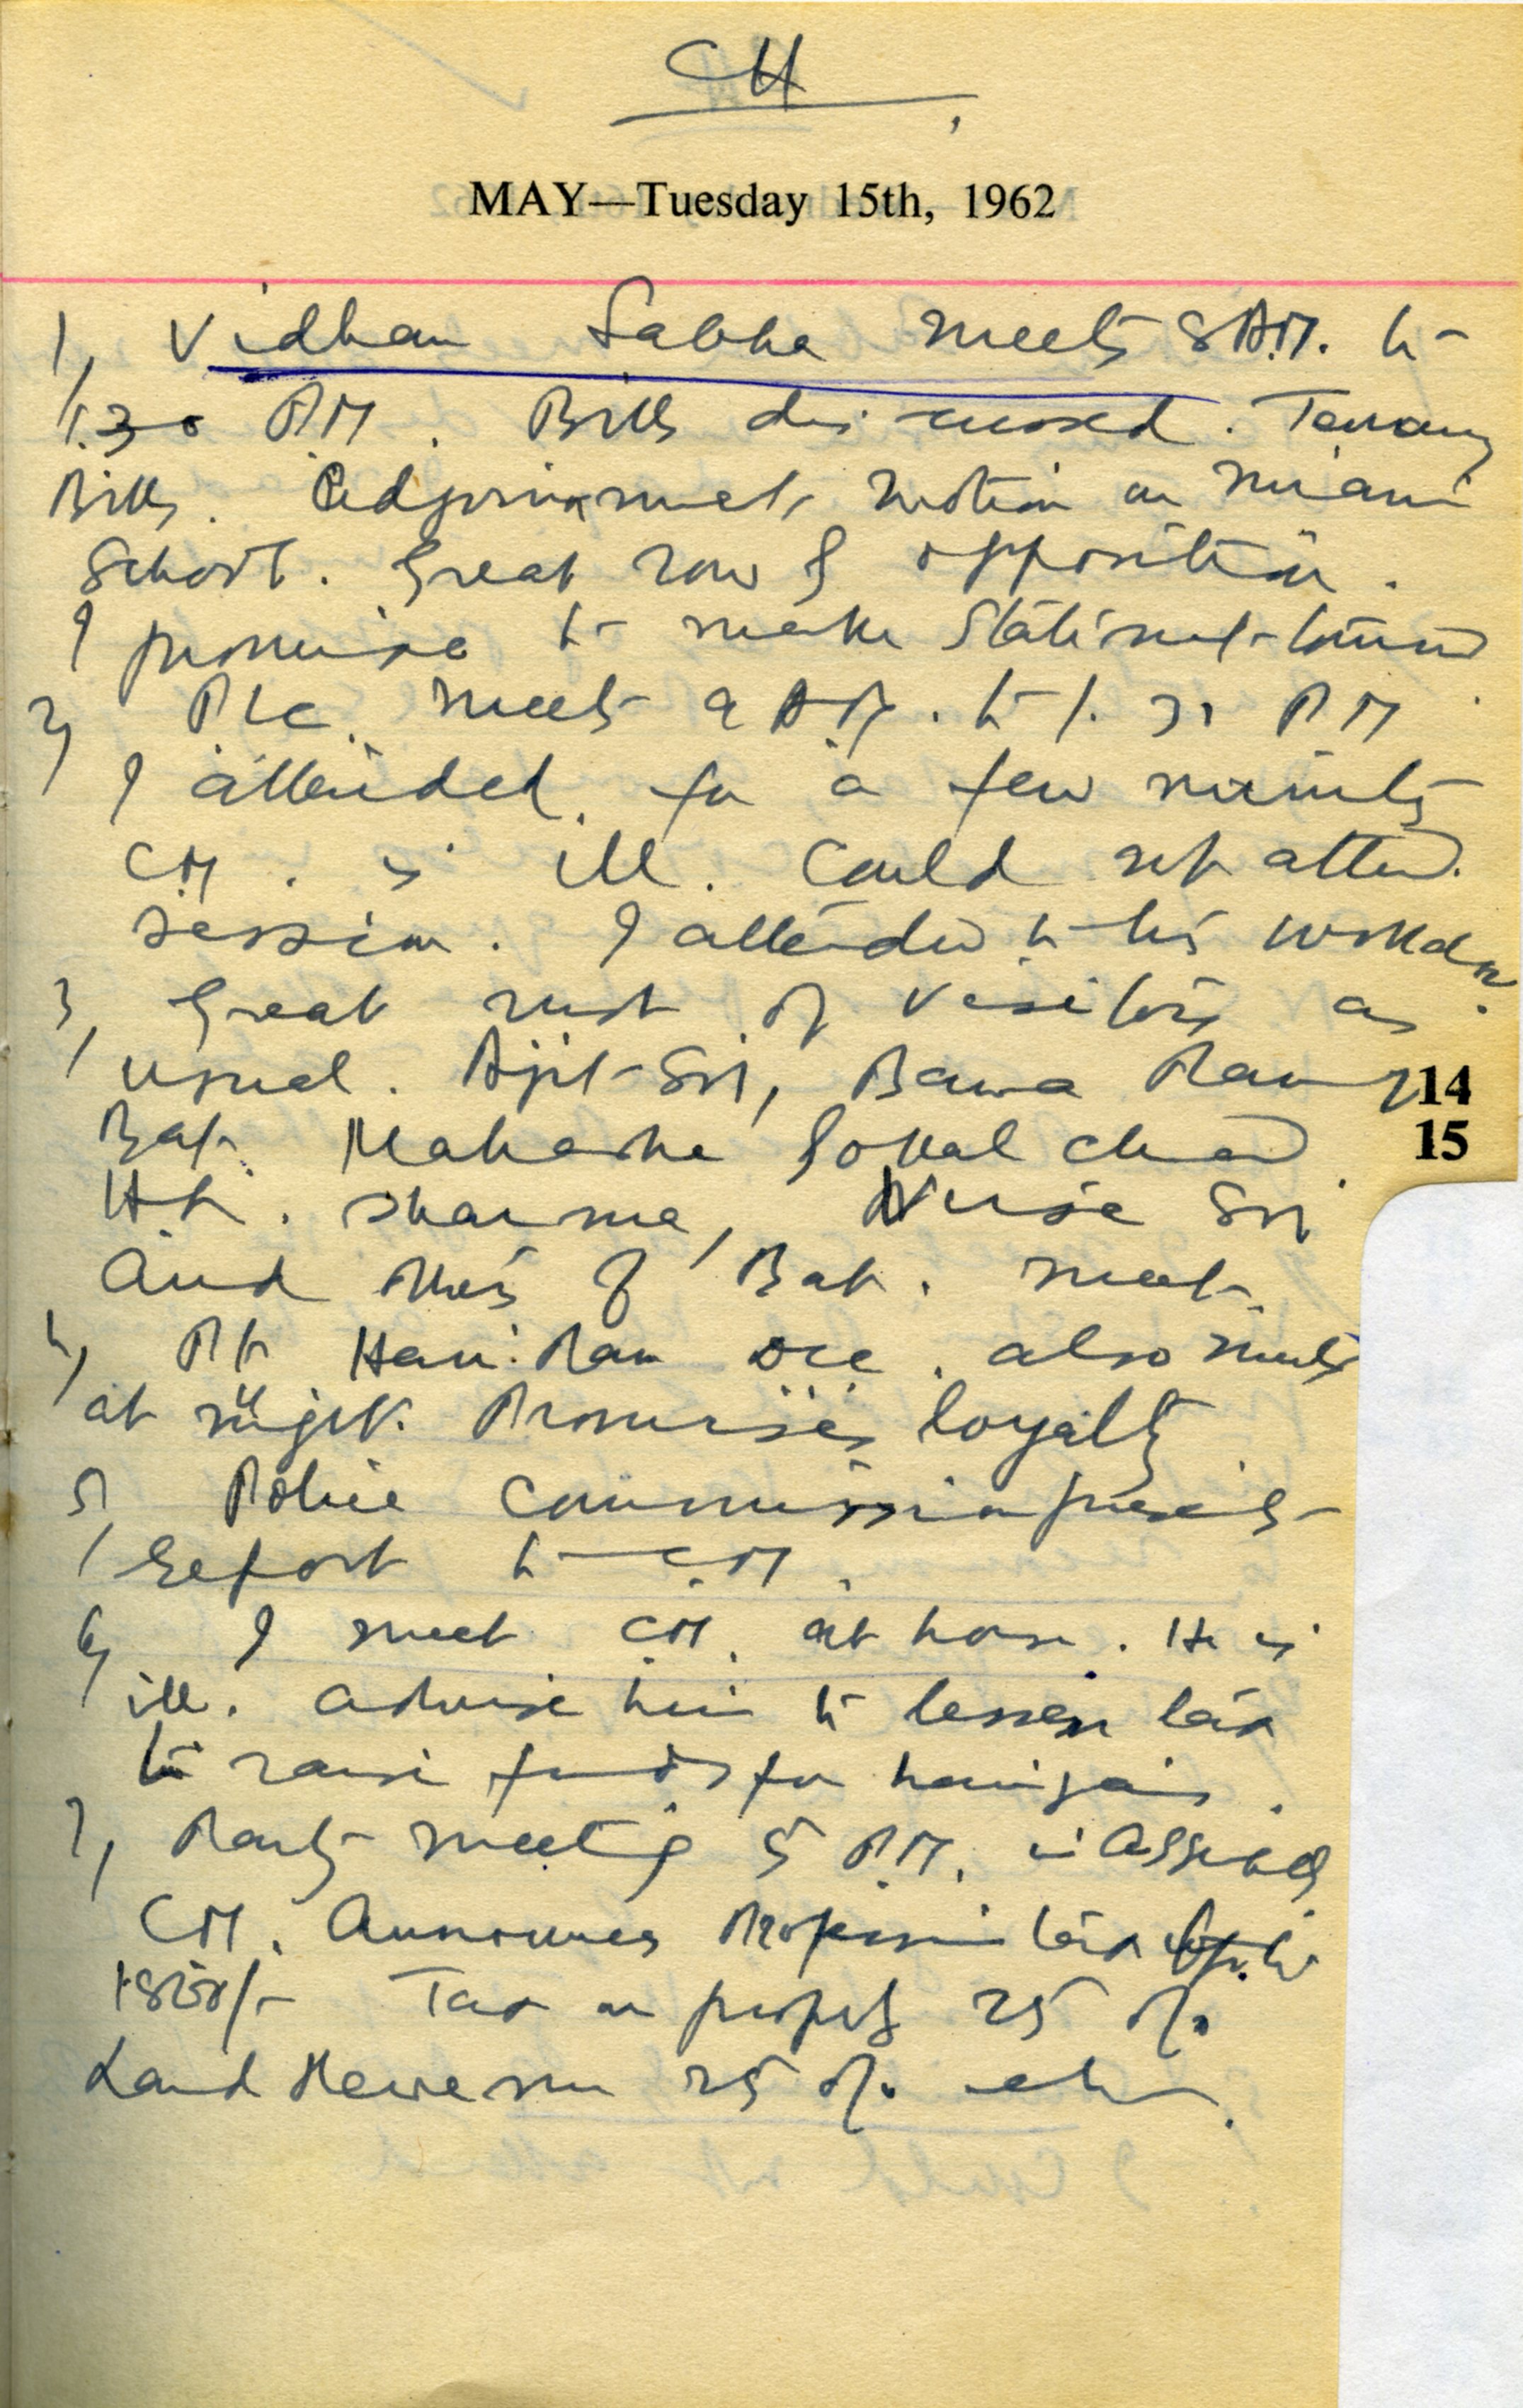 CH
MAY—Tuesday 15th, 1962
1, Vidhan Sabha meets 8 A.M. to
1.30 PM. Bills discussed. Tenancy
Bills. Adjournment motion on
School. Great row of opposition.
I promise to make Statement
2, meets 9 AM. to 1. PM.
I attended for a few minutes
CM. is ill. Could not attend
session. I attended to his
3, Great rush of visitors as
usual. Ajit Sri, Bawa Ram
14
Bat. Mahashe Gopal Chand
15
H.R. Sharma, Sri
and others of Bat. meet.
4, Pt Hari Ram also meets
at night. Promises loyalty
5, Police Commission presents
report to C.M.
6, I meet C.M. at house. He is
ill. advise him to lessen tax
to raise funds for harijans.
7, Party meeting 5 P.M. in Assembly
C.M. Announces Profession tax
Tax on property 25 %.
Land Revenue 25 %. etc.